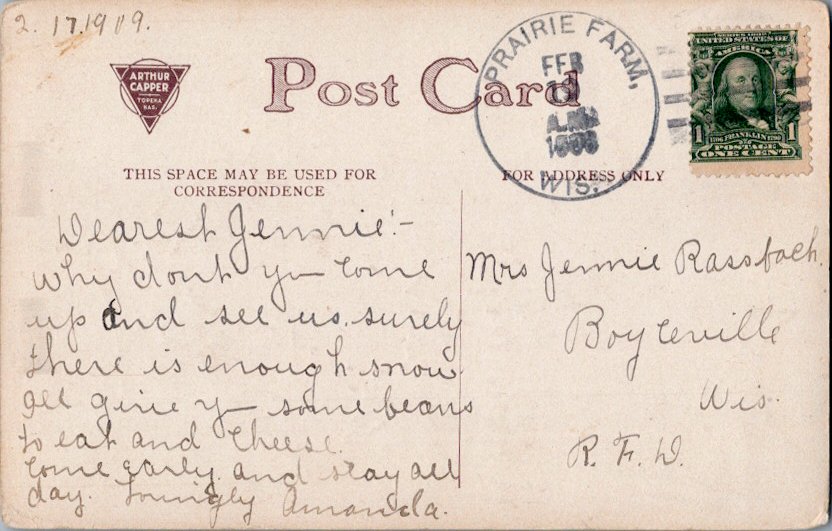 2. 17. 1909.
ARTHUR
CAPPER
TOPEKA
KAS.
Post Card
PRAIRIE FARM,
FEB
A.M.
WIS.
SERIES 1902
UNITED STATES OF
AMERICA
1 1706 FRANKLIN 1790 1
POSTAGE
ONE CENT
THIS SPACE MAY BE USED FOR
CORRESPONDENCE
FOR ADDRESS ONLY
Dearest Jennie:-
why dont yu come
up and see us. surely
there is enough snow
Ill give yu some beans
to eat and cheese.
Come early and stay all
day. Lovingly Amanda.
Mrs Jennie Rassbach.
Boyceville
Wis.
R. F. D.